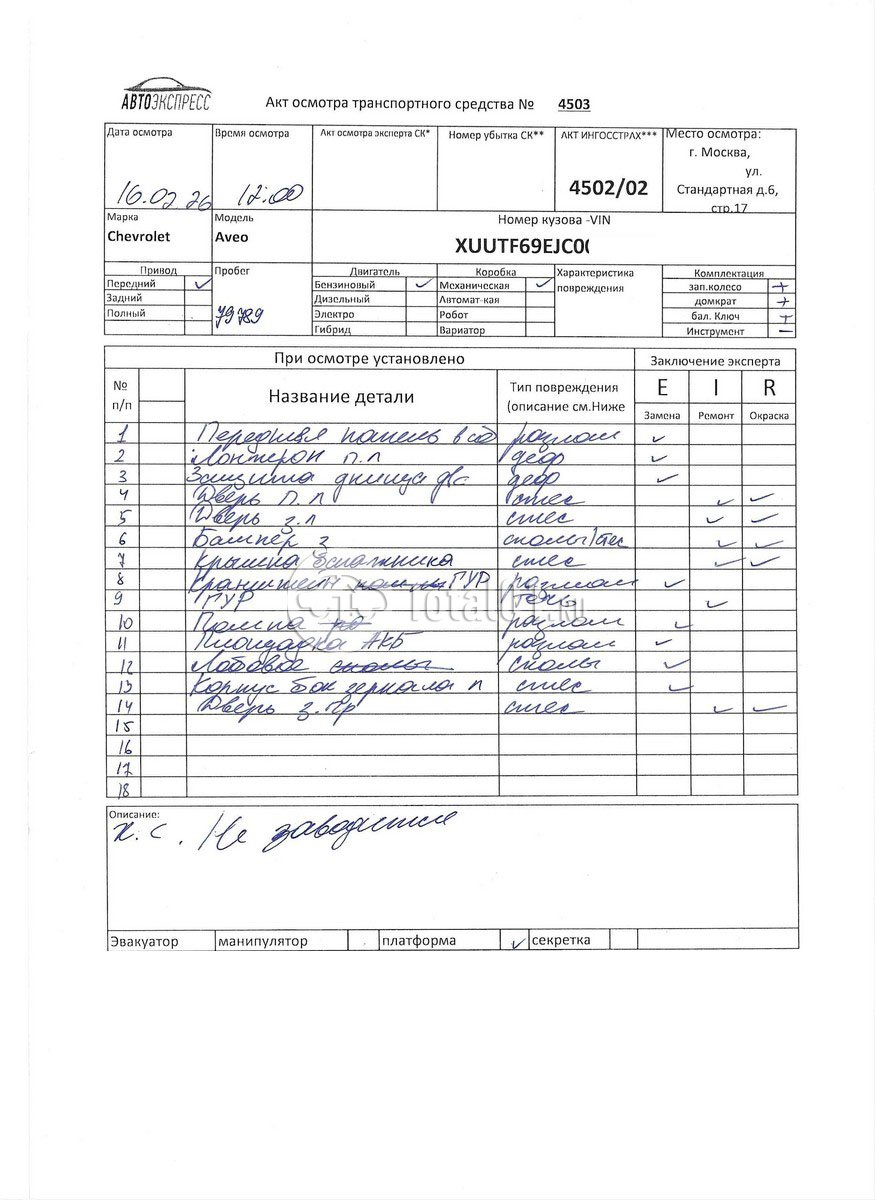 АВТОЭКСПРЕСС
Акт осмотра транспортного средства № 4503
Дата осмотра Время осмотра Акт осмотра эксперта СК* Номер убытка СК** АКТ ИНГОССТРАХ*** Место осмотра:
г. Москва,
ул.
16.02 26 12:00 4502/02 Стандартная д.6,
стр.17
Марка Модель Номер кузова -VIN
Chevrolet Aveo XUUTF69EJC0
Привод Пробег Двигатель Коробка Характеристика Комплектация
Передний Бензиновый Механическая повреждения зап.колесо +
Задний Дизельный Автомат-кая домкрат +
Полный 79789 Электро Робот бал. Ключ +
Гибрид Вариатор Инструмент –
При осмотре установлено Заключение эксперта
№ Название детали Тип повреждения E I R
п/п (описание см.Ниже Замена Ремонт Окраска
1 Передняя панель в сб разлом
2 Лонжерон п.л деф
3 Защита днища двс деф
4 Дверь п.л стес
5 Дверь з.л стес
6 Бампер з сколы/стес
7 Крышка багажника стес
8 Кронштейн ГУР разлом
9 ГУР течь
10 Помпа разлом
11 Площадка АКБ разлом
12 Лобовое сколы сколы
13 Корпус бок зеркала п стес
14 Дверь з.пр стес
15
16
17
18
Описание:
х.с. Не заводится
Эвакуатор манипулятор платформа секретка
Total01.ru